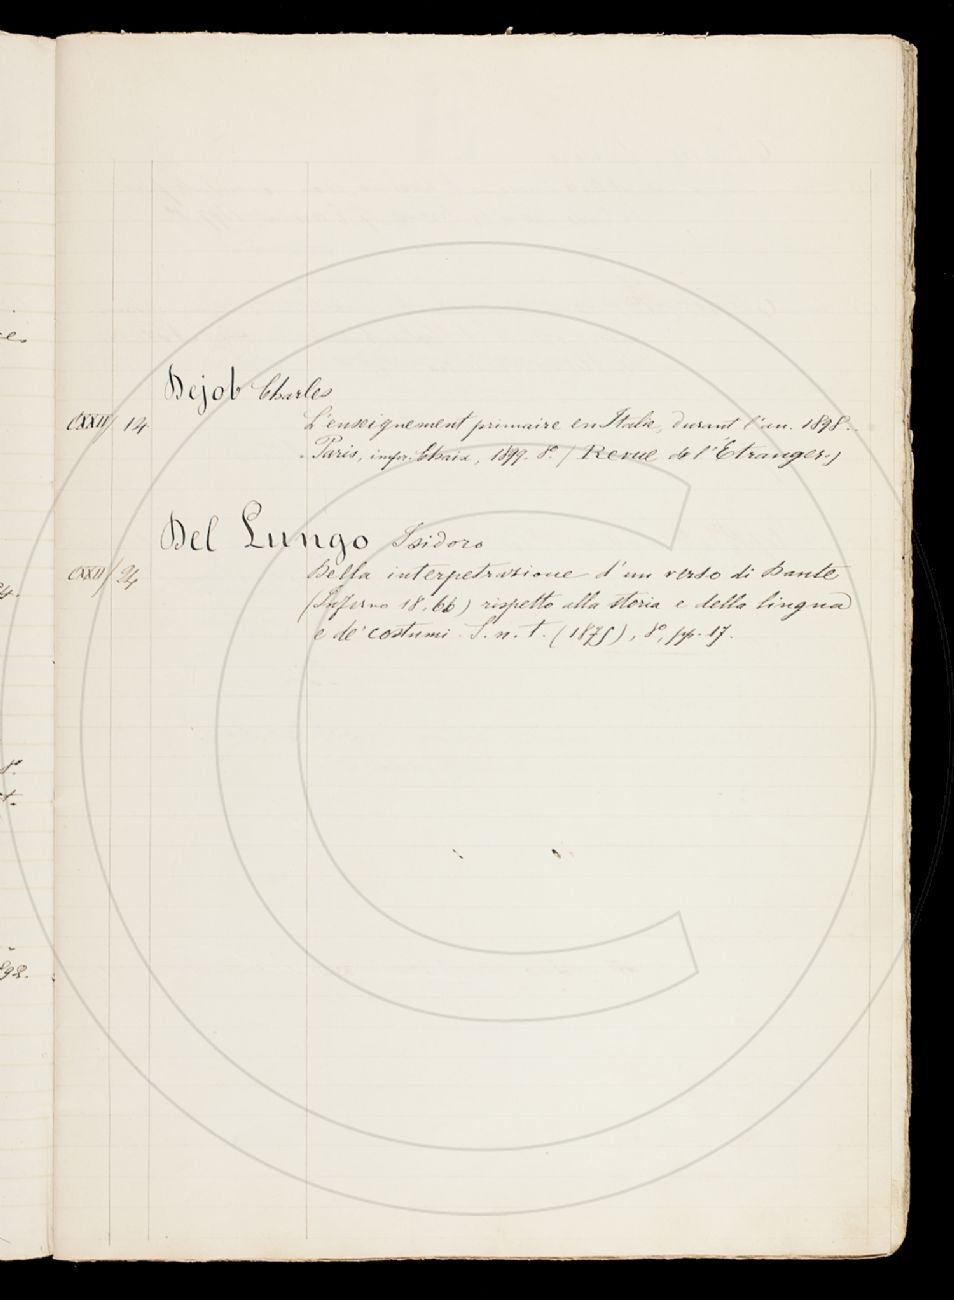 Dejob Charles
CXXII/14 L'enseignement primaire en Italie, durant l'an. 1898.
Paris, impr. Chaix, 1899. 8.° (Revue de l'Étranger.)
Del Lungo Isidoro
CXXII/24 Della interpetrazione d'un verso di Dante
(Inferno 18, 66) rispetto alla storia e della lingua
e de' costumi. S. n. t. (1875), 8°, pp. 17.